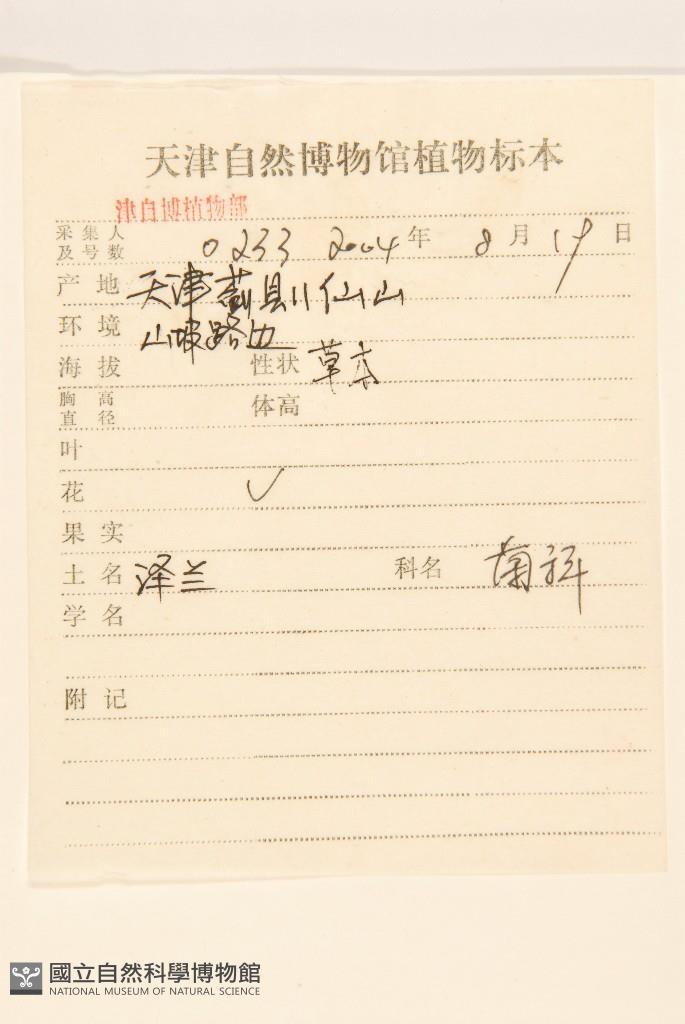 天津自然博物馆植物标本
津自博植物部
采集人
及号数 0233 2004年 8月19日
产地 天津蓟县八仙山
环境 山坡路边
海拔 性状 草本
胸高
直径 体高
叶
花 ✓
果实
土名 泽兰 科名 菊科
学名
附记
國立自然科學博物館
NATIONAL MUSEUM OF NATURAL SCIENCE